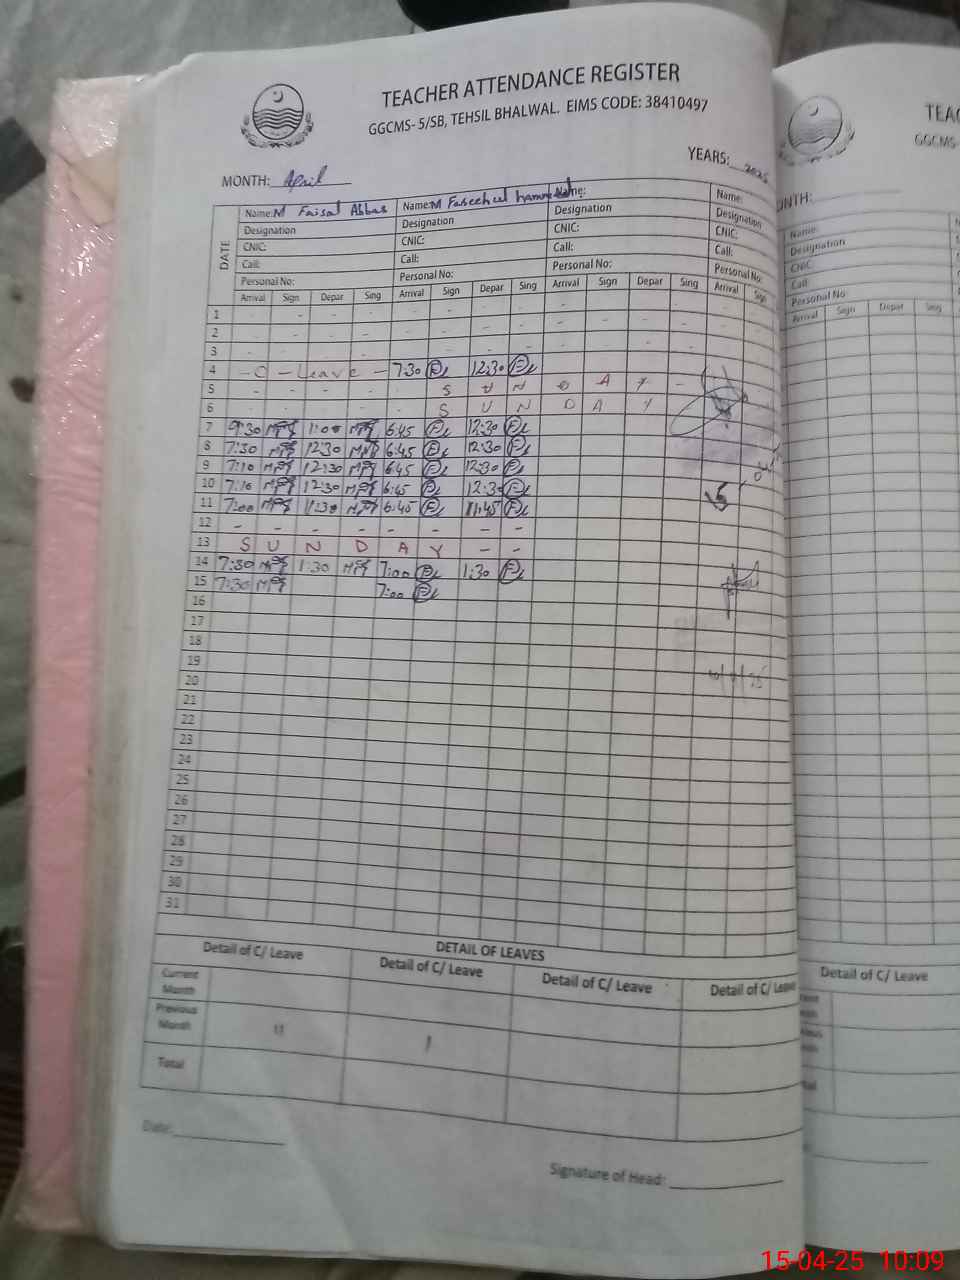 TEACHER ATTENDANCE REGISTER
GGCMS- 5/SB, TEHSIL BHALWAL. EIMS CODE: 38410497
MONTH: April YEARS: 2025
DATE
Name: M Faisal Abbas Name: M Name: Name:
Designation Designation Designation Designation
CNIC: CNIC: CNIC: CNIC:
Call: Call: Call: Call:
Personal No: Personal No: Personal No: Personal No:
Arrival Sign Depar Sing Arrival Sign Depar Sing Arrival Sign Depar Sing Arrival Sign
1
2
3
4 - C - Leave - 7:30 12:30
5 S U N D A Y -
6 S U N D A Y
7 9:30 1:00 6:45 12:30
8 7:30 12:30 6:45 12:30
9 7:10 12:30 6:45 12:30
10 7:10 12:30 6:45 12:30
11 7:00 11:30 6:45 11:45
12 - - - - - - - -
13 S U N D A Y - -
14 7:30 1:30 7:00 1:30
15 7:30 7:00
16
17
18
19
20
21
22
23
24
25
26
27
28
29
30
31
DETAIL OF LEAVES
Detail of C/ Leave Detail of C/ Leave Detail of C/ Leave Detail of C/ Leave
Current Month
Previous Month 11 1
Total
Date:
Signature of Head:
TEAC
GGCMS-
NTH:
Name:
Designation
CNIC:
Call:
Personal No:
Arrival Sign Depar Sing
Detail of C/ Leave
15-04-25 10:09